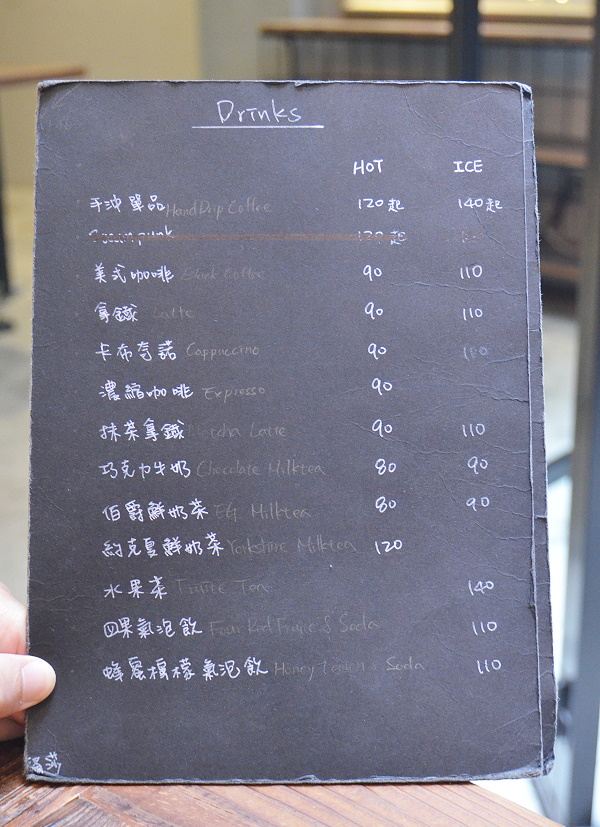 Drinks
HOT ICE
手沖單品 Hand Drip Coffee 120起 140起
Steampunk 120起
美式咖啡 Black Coffee 90 110
拿鐵 Latte 90 110
卡布奇諾 Cappuccino 90 100
濃縮咖啡 Expresso 90
抹茶拿鐵 Matcha Latte 90 110
巧克力牛奶 Chocolate Milktea 80 90
伯爵鮮奶茶 EG Milktea 80 90
約克夏鮮奶茶 Yorkshire Milktea 120
水果茶 Fruite Tea 140
四果氣泡飲 Red Fruite & Soda 110
蜂蜜檸檬氣泡飲 Honey Lemon & Soda 110